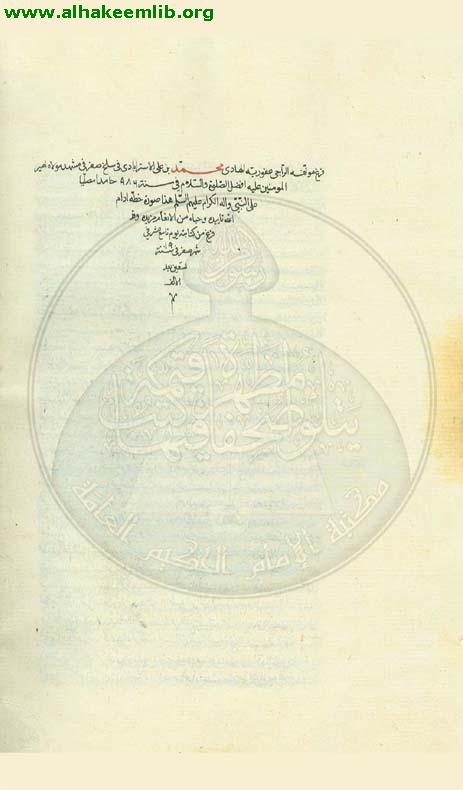 www.alhakeemlib.org
فرغ مؤلفه الراجي عفو ربه الهادي محمد بن علي الاستراباذي في سلخ صفر في مشهد مولاه امير
المومنين عليه افضل الصلوة والسلام في سنة ٩٨٦ حامدا مصليا
على النبي واله الكرام عليهم السلم هذا صورة خطه ادام
الله تاييده وحباه من الانعام مزيده وقد
فرغ من كتابته يوم تاسع عشر في
شهر صفر في سنة
تسعين بعد
الالف
م
يتلو صحفا مطهرة فيها كتب قيمة
مكتبة الإمام الحكيم العامة